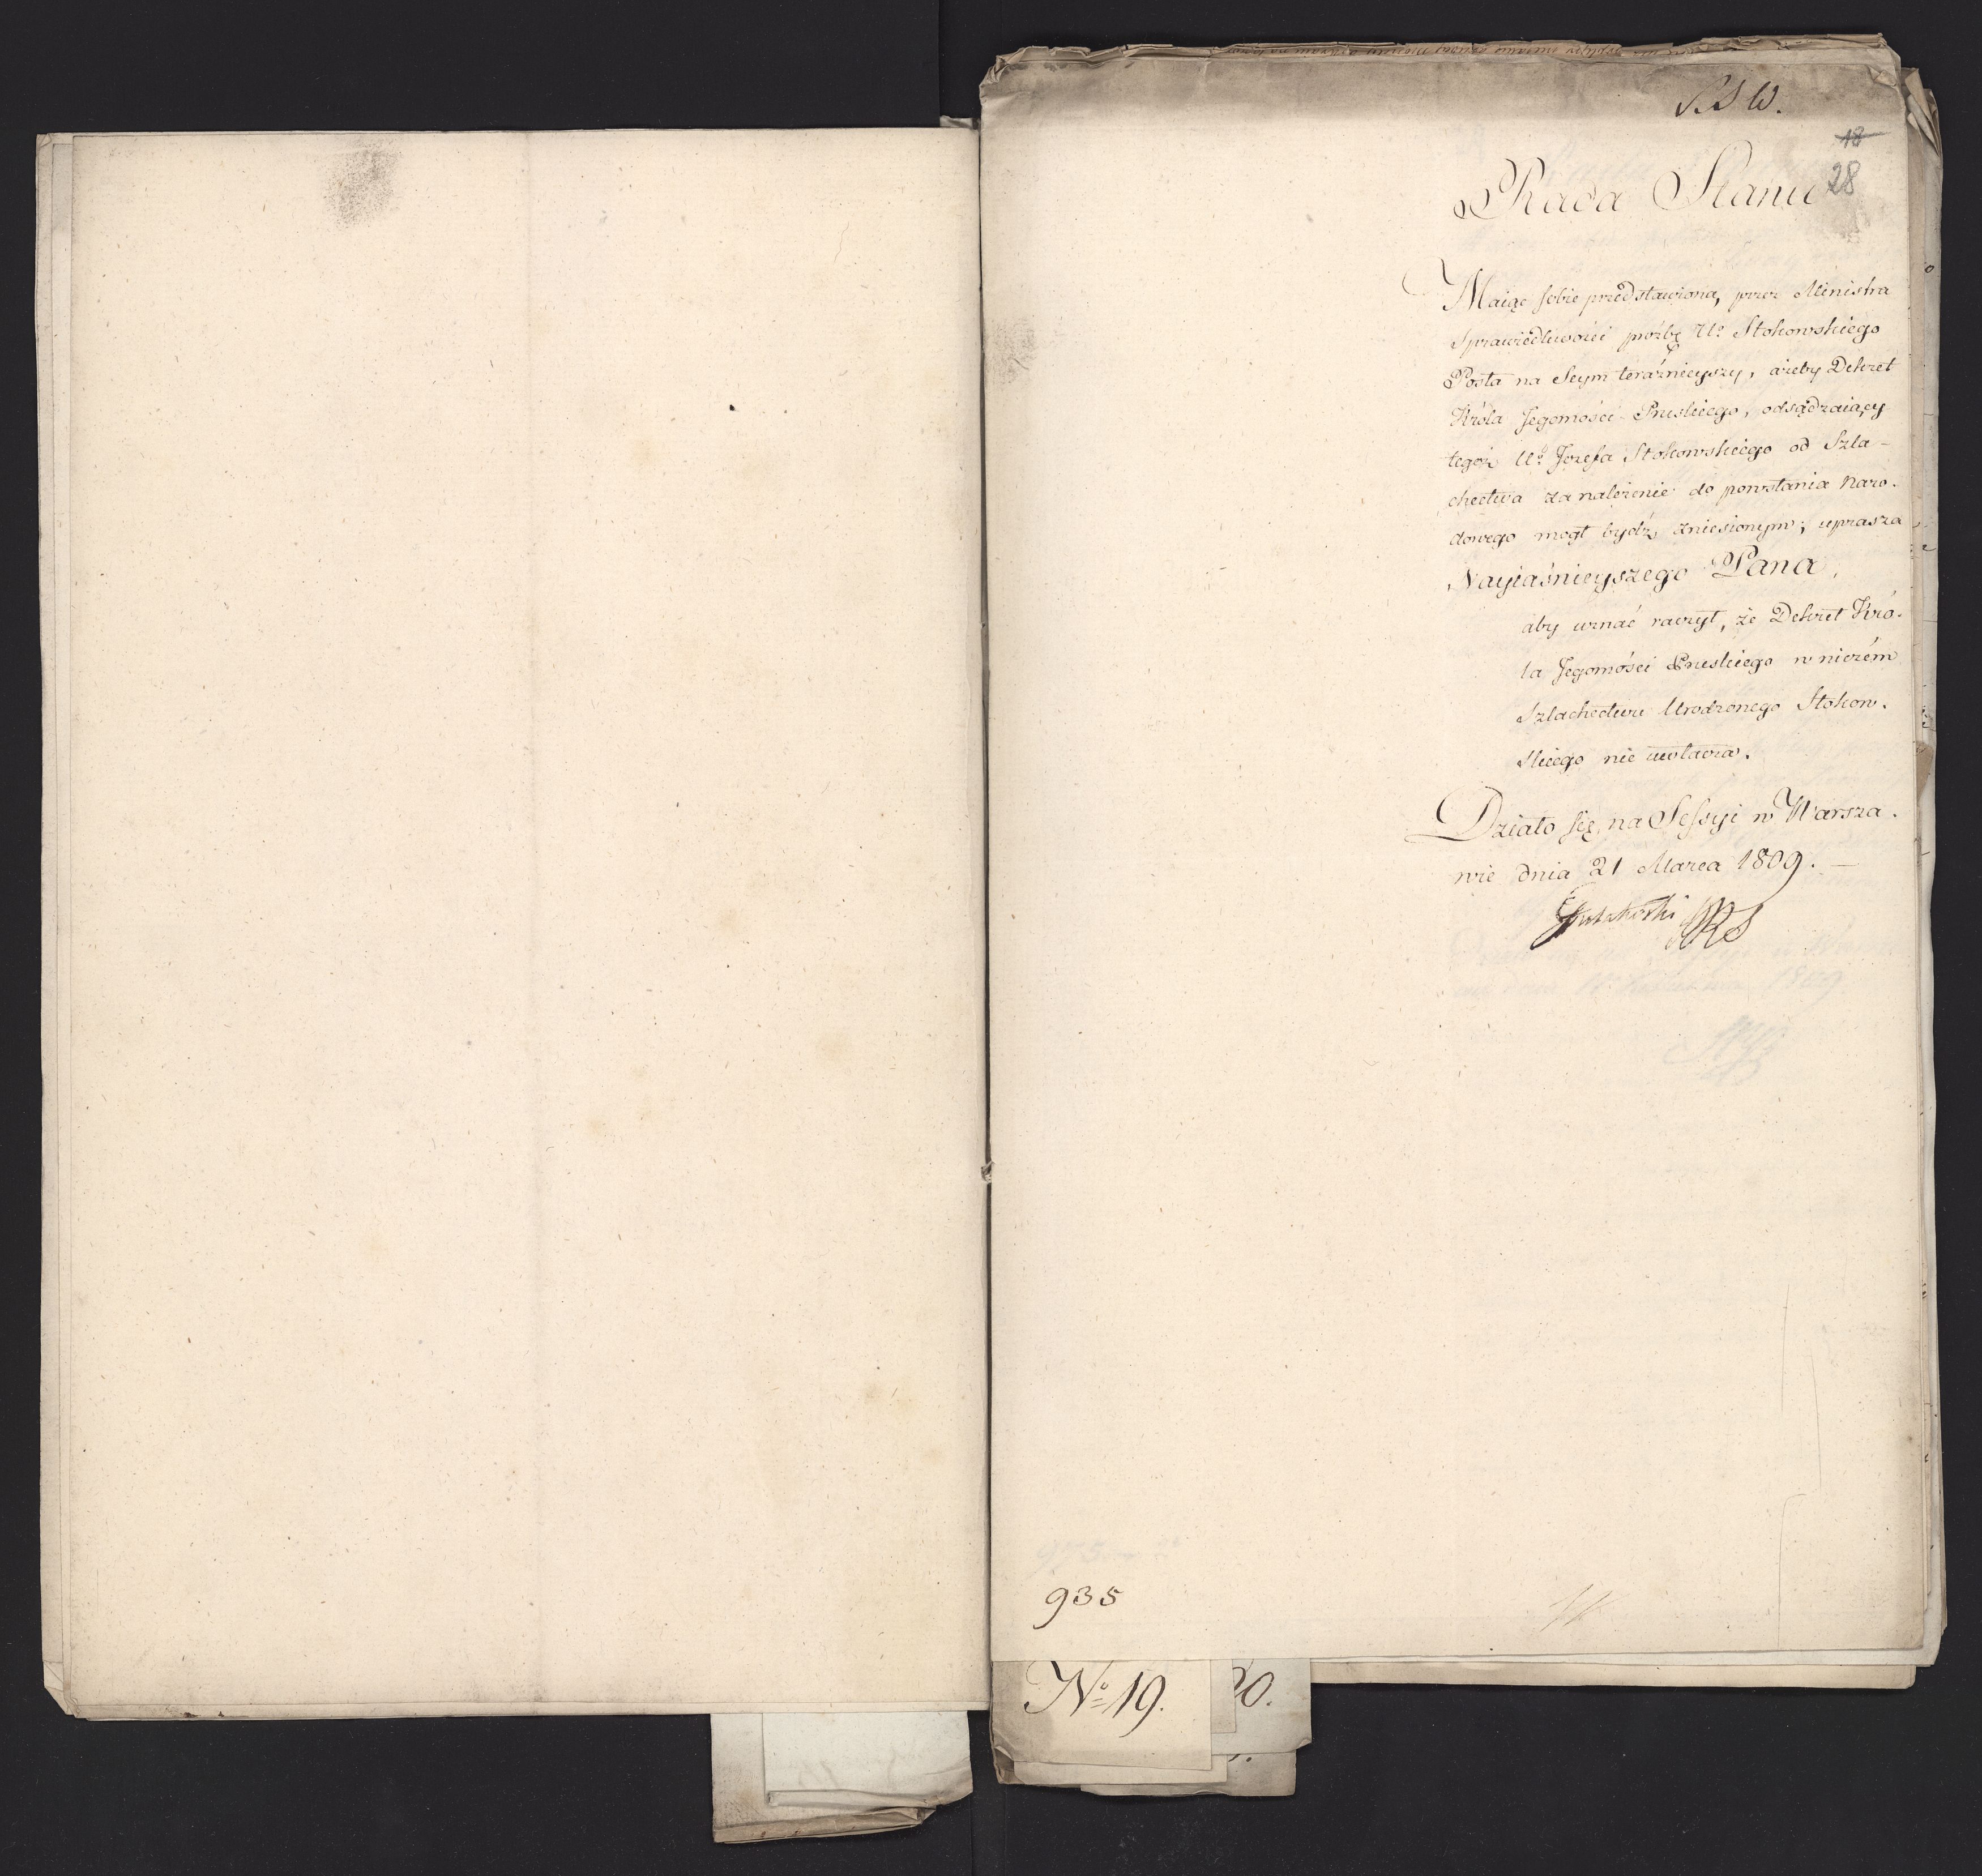 18
28
Rada Stanu
Maiąc sobie przedstawioną, przez Ministra
Sprawiedliwości proźbę Uo. Stokowskiego
Posła na Seym teraźnieyszy, ażeby Dekret
Króla Jegomości Pruskiego, odsądzaiący
tegoż Uo. Jozefa Stokowskiego od Szla-
chectwa za należenie do powstania Naro-
dowego mogł bydź zniesionym; uprasza
Nayiaśnieyszego Pana,
aby uznać raczył, że Dekret Kró-
la Jegomości Pruskiego w niczém
Szlachectwu Urodzonego Stokow-
skiego nie uwłacza.
Działo się na Sessyi w Warsza-
wie dnia 21 Marca 1809. —
Gutakowski PRS
935
No. 19.
20.